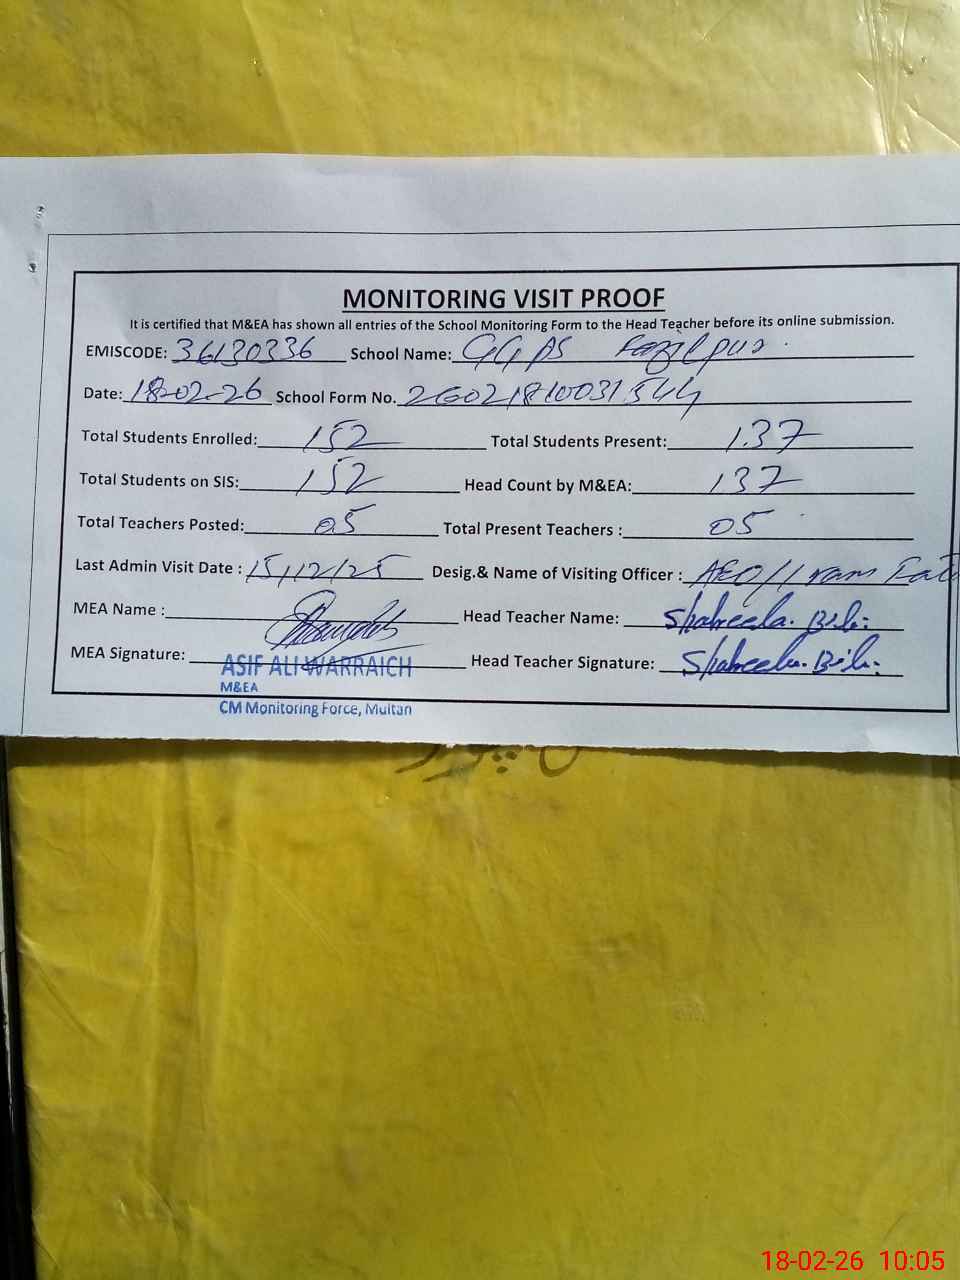 MONITORING VISIT PROOF
It is certified that M&EA has shown all entries of the School Monitoring Form to the Head Teacher before its online submission.
EMISCODE: 36130336 School Name: GGPS Fazilpur.
Date: 18-02-26 School Form No. 26021810031544
Total Students Enrolled: 152 Total Students Present: 137
Total Students on SIS: 152 Head Count by M&EA: 137
Total Teachers Posted: 05 Total Present Teachers : 05
Last Admin Visit Date : 15/12/25 Desig.& Name of Visiting Officer : AEO//
MEA Name : Head Teacher Name: Shaheela. Bibi.
MEA Signature: Head Teacher Signature: Shaheela. Bibi.
ASIF ALI WARRAICH
M&EA
CM Monitoring Force, Multan
18-02-26 10:05